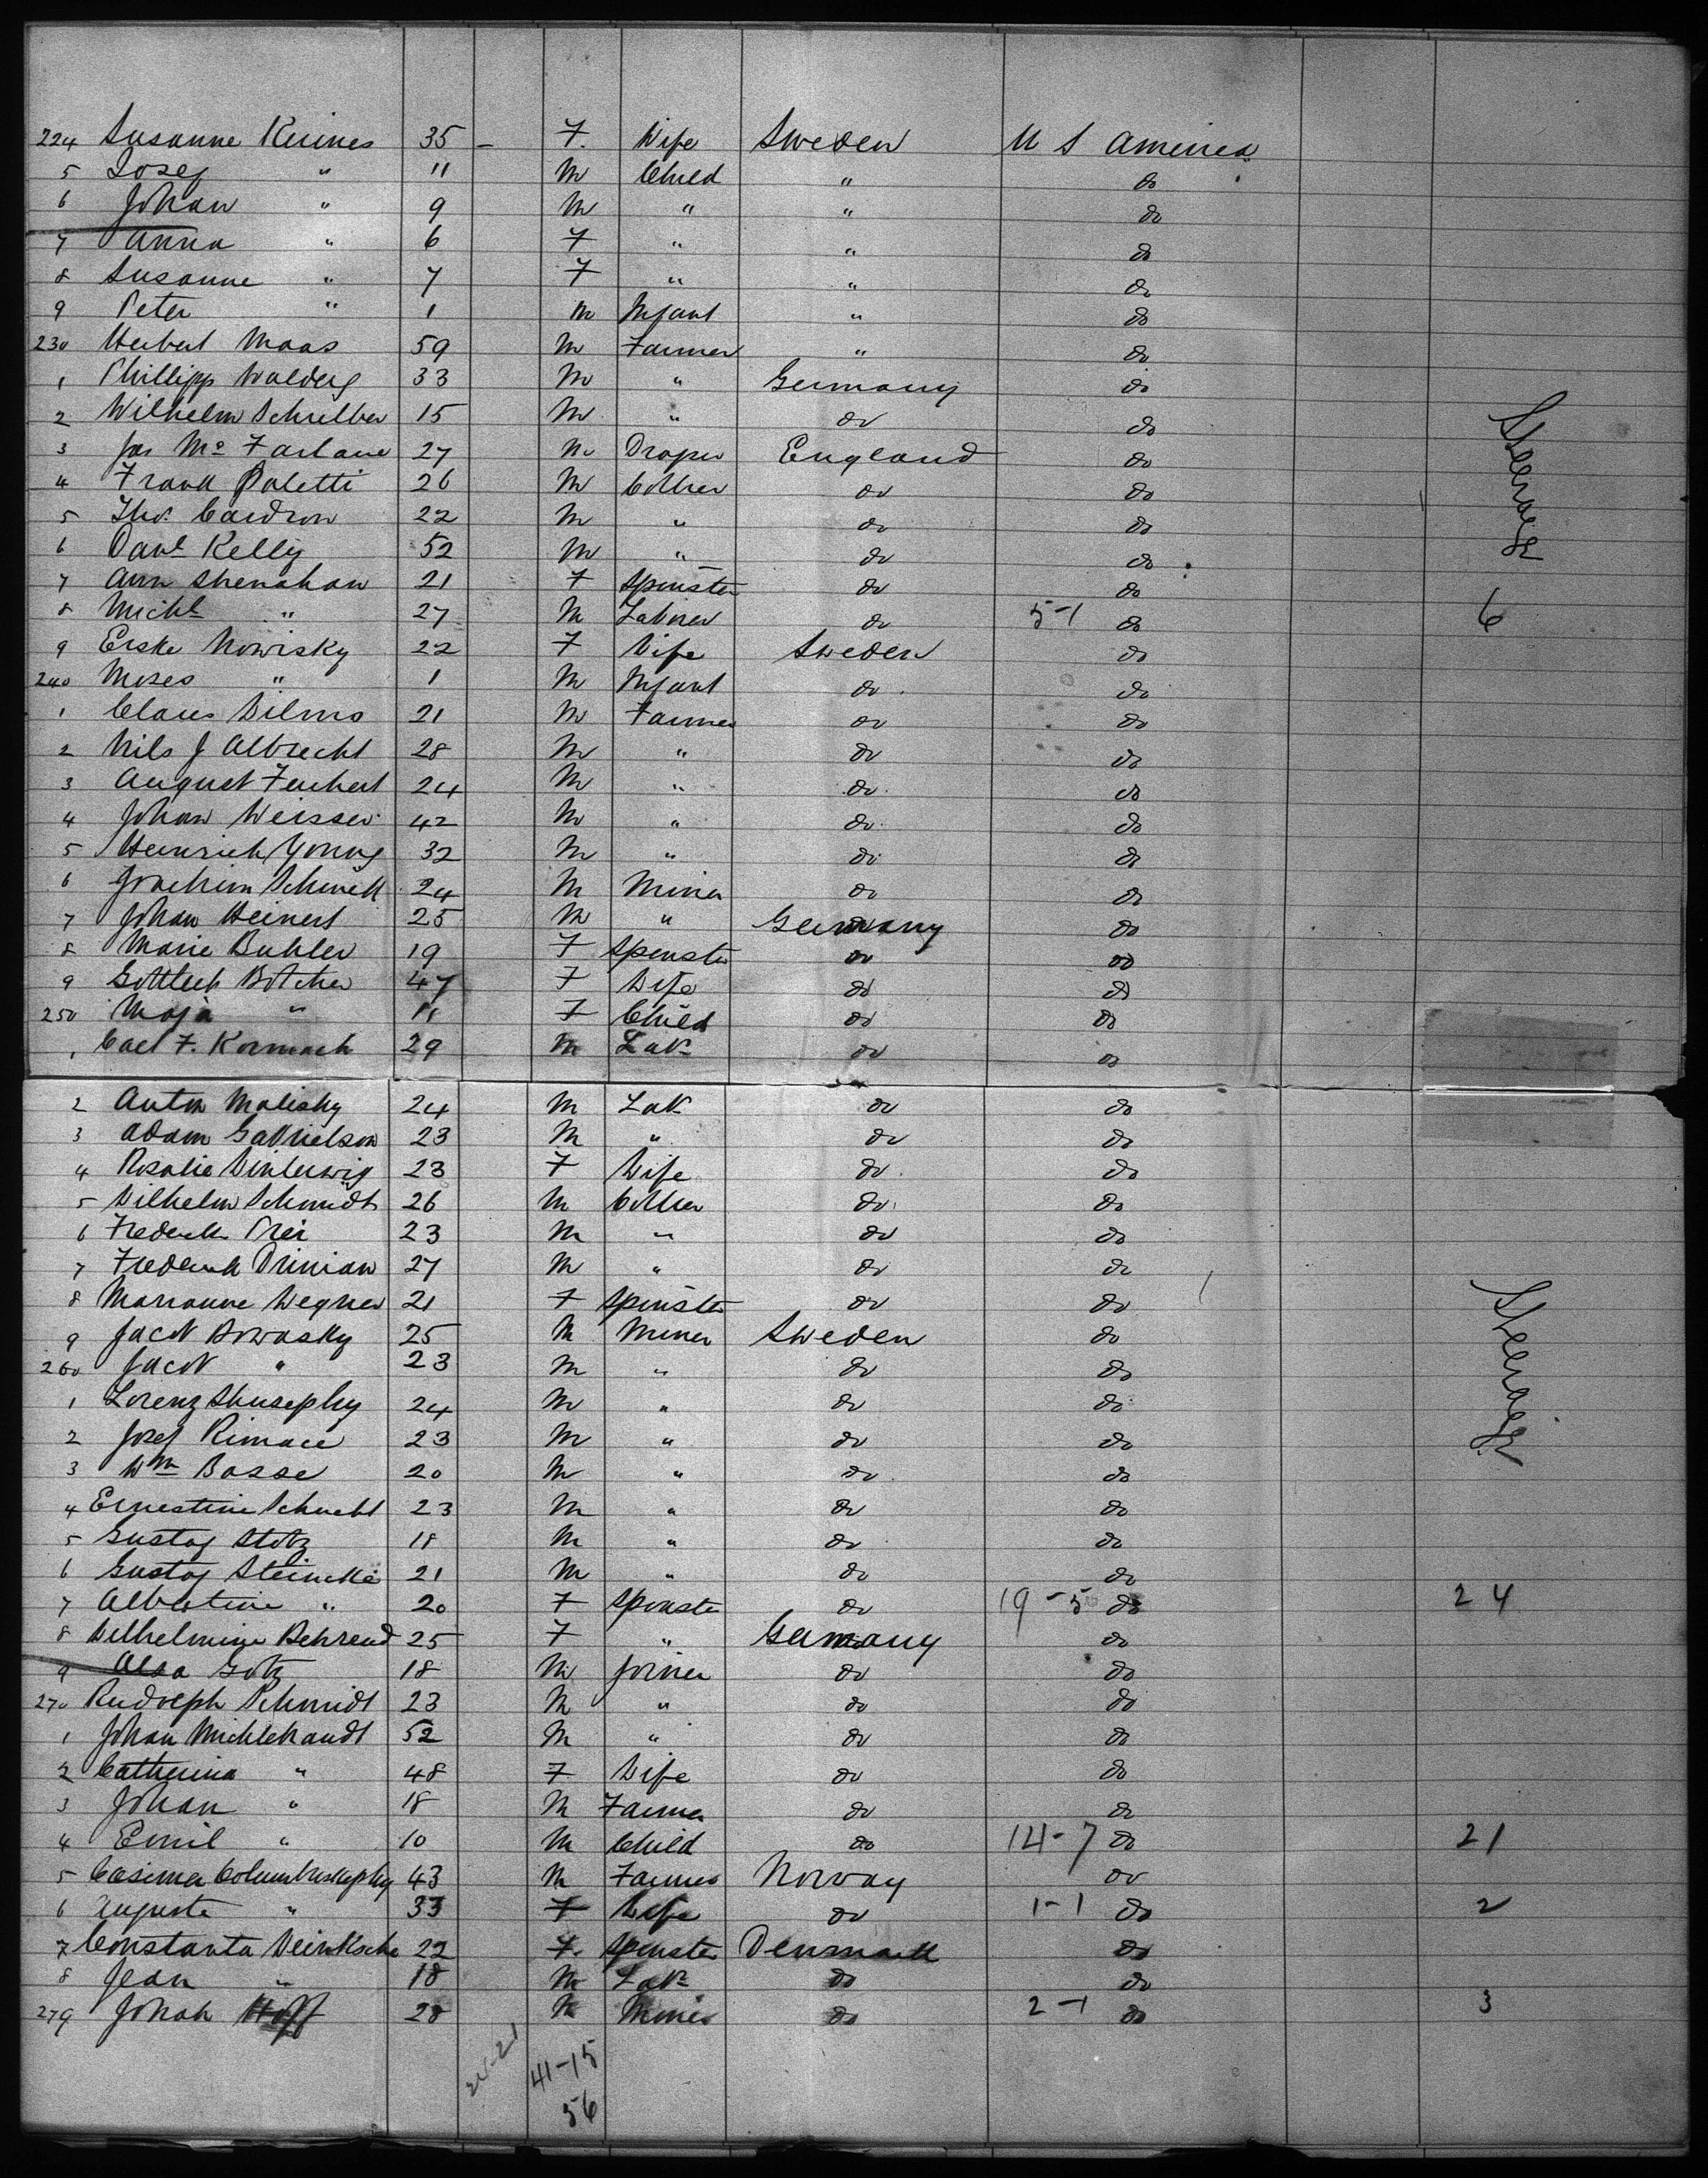 224 Susanne Reimes 35 – F. Wife Sweden U S America
5 Josef " 11 M Child " do
6 Johan " 9 M " " do
7 Anna " 6 F " " do
8 Susanne " 7 F " " do
9 Peter " 1 M Infant " do
230 Herbert Maas 59 M Farmer " do
1 Phillipp Walderf 33 M " Germany do
2 Wilhelm Schreiber 15 M " do do
3 Jas Mc Farlane 27 M Draper England do
4 Frank Paletti 26 M Collier do do
5 Thos. Cardron 22 M " do do
6 Danl Kelly 52 M " do do
7 Ann Shenahan 21 F Spinster do do
8 Michl " 27 M Laborer do 5-1 do 6
9 Erske Nowisky 22 F Wife Sweden do
240 Moses " 1 M Infant do do
1 Claus Wilms 21 M Farmer do do
2 Nils J Albrecht 28 M " do do
3 August Feuchert 24 M " do do
4 Johan Weisser 42 M " do do
5 Heinrich Young 32 M " do do
6 Joachim Schmell 24 M Miner do do
7 Johan Heinert 25 M " Germany do
8 Marie Buhler 19 F Spinster do do
9 Gottlieb Botcher 47 F Wife do do
250 Maja " 11 F Child do do
1 Carl F. Kormach 29 M Lab do do
2 Anton Malisky 24 M Lab do do
3 Adam Gabrielson 23 M " do do
4 Rosalie 23 F Wife do do
5 Wilhelm Schmidt 26 M Collier do do
6 Frederik Prei 23 M " do do
7 Frederik 27 M " do do
8 Marianne Wegner 21 F Spinster do do
9 Jacob Bowasky 25 M Miner Sweden do
260 Jacob " 23 M " do do
1 Lorenz 24 M " do do
2 Josef Rimace 23 M " do do
3 Wm Basse 20 M " do do
4 Ernestine Schucht 23 M " do do
5 Gustaf Stotz 18 M " do do
6 Gustaf Steincke 21 M " do do
7 Albertine " 20 F Spinster do 19-5 do 24
8 Wilhelmine Behrend 25 F " Germany do
9 Gotz 18 M Joiner do do
270 Rudolph Schmidt 23 M " do do
1 Johan Michlehandt 52 M " do do
2 Catherina " 48 F Wife do do
3 Johan " 18 M Farmer do do
4 Emil " 10 M Child do 14-7 do 21
5 Casimer 43 M Farmer Norway do
6 Auguste " 33 F Wife do 1-1 do 2
7 Constanta 22 F. Spinster Denmark do
8 Jean " 18 M Lab do do
279 Johan Hoff 28 M Miner do 2-1 do 3
41-15
56
Steerage
Steerage